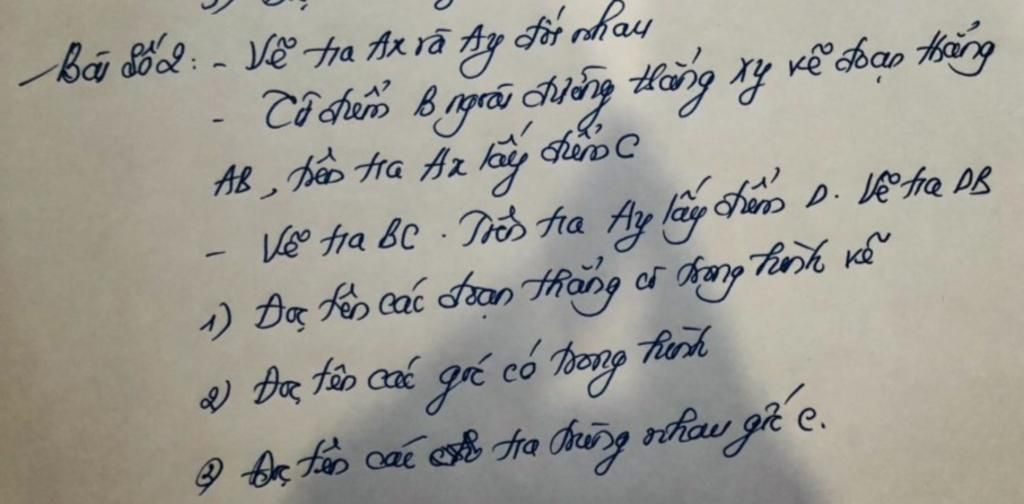 Bài số 2: - Vẽ tia Ax và Ay đối nhau
- Từ điểm B ngoài đường thẳng xy vẽ đoạn thẳng
AB, trên tia Ax lấy điểm C
- Vẽ tia BC. Trên tia Ay lấy điểm D. Vẽ tia DB
1) Đọc tên các đoạn thẳng có trong hình vẽ
2) Đọc tên các góc có trong hình
3) Đọc tên các tia trùng nhau gốc C.